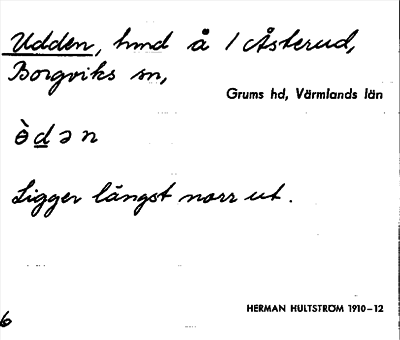 Udden, hmd å / Åsterud,
Borgviks sn,
Grums hd, Värmlands län
ὲd̲ə n
Ligger längst norr ut.
HERMAN HULTSTRÖM 1910–12
6